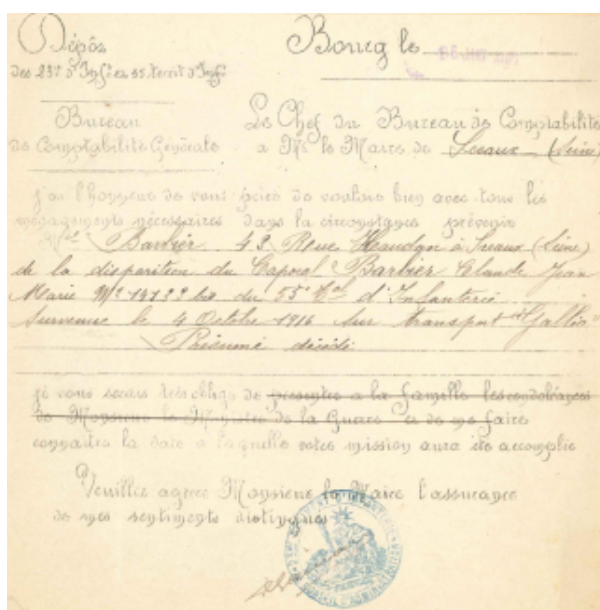 Dépôt
des 23e d'Infie et 55. territ d'Infie
Bourg le
Bureau
de Comptabilité Générale
Le Chef du Bureau de Comptabilité
à Mr le Maire de Sceaux (Seine)
j'ai l'honneur de vous prier de vouloir bien avec tous les
ménagements nécessaires dans la circonstance prévenir
Barbier 43 Rue à Sceaux (Seine)
de la disparition du Caporal Barbier Claude Jean
Marie Mle du 55e d'Infanterie
survenue le 4 Octobre 1916 sur transport "Gallia"
Présumé décédé
je vous serais très obligé de presenter a la famille les condoléances
de Monsieur le Ministre de la Guerre et de me faire
connaitre la date a laquelle votre mission aura été accomplie
Veuillez agréer Monsieur le Maire l'assurance
de mes sentiments distingués